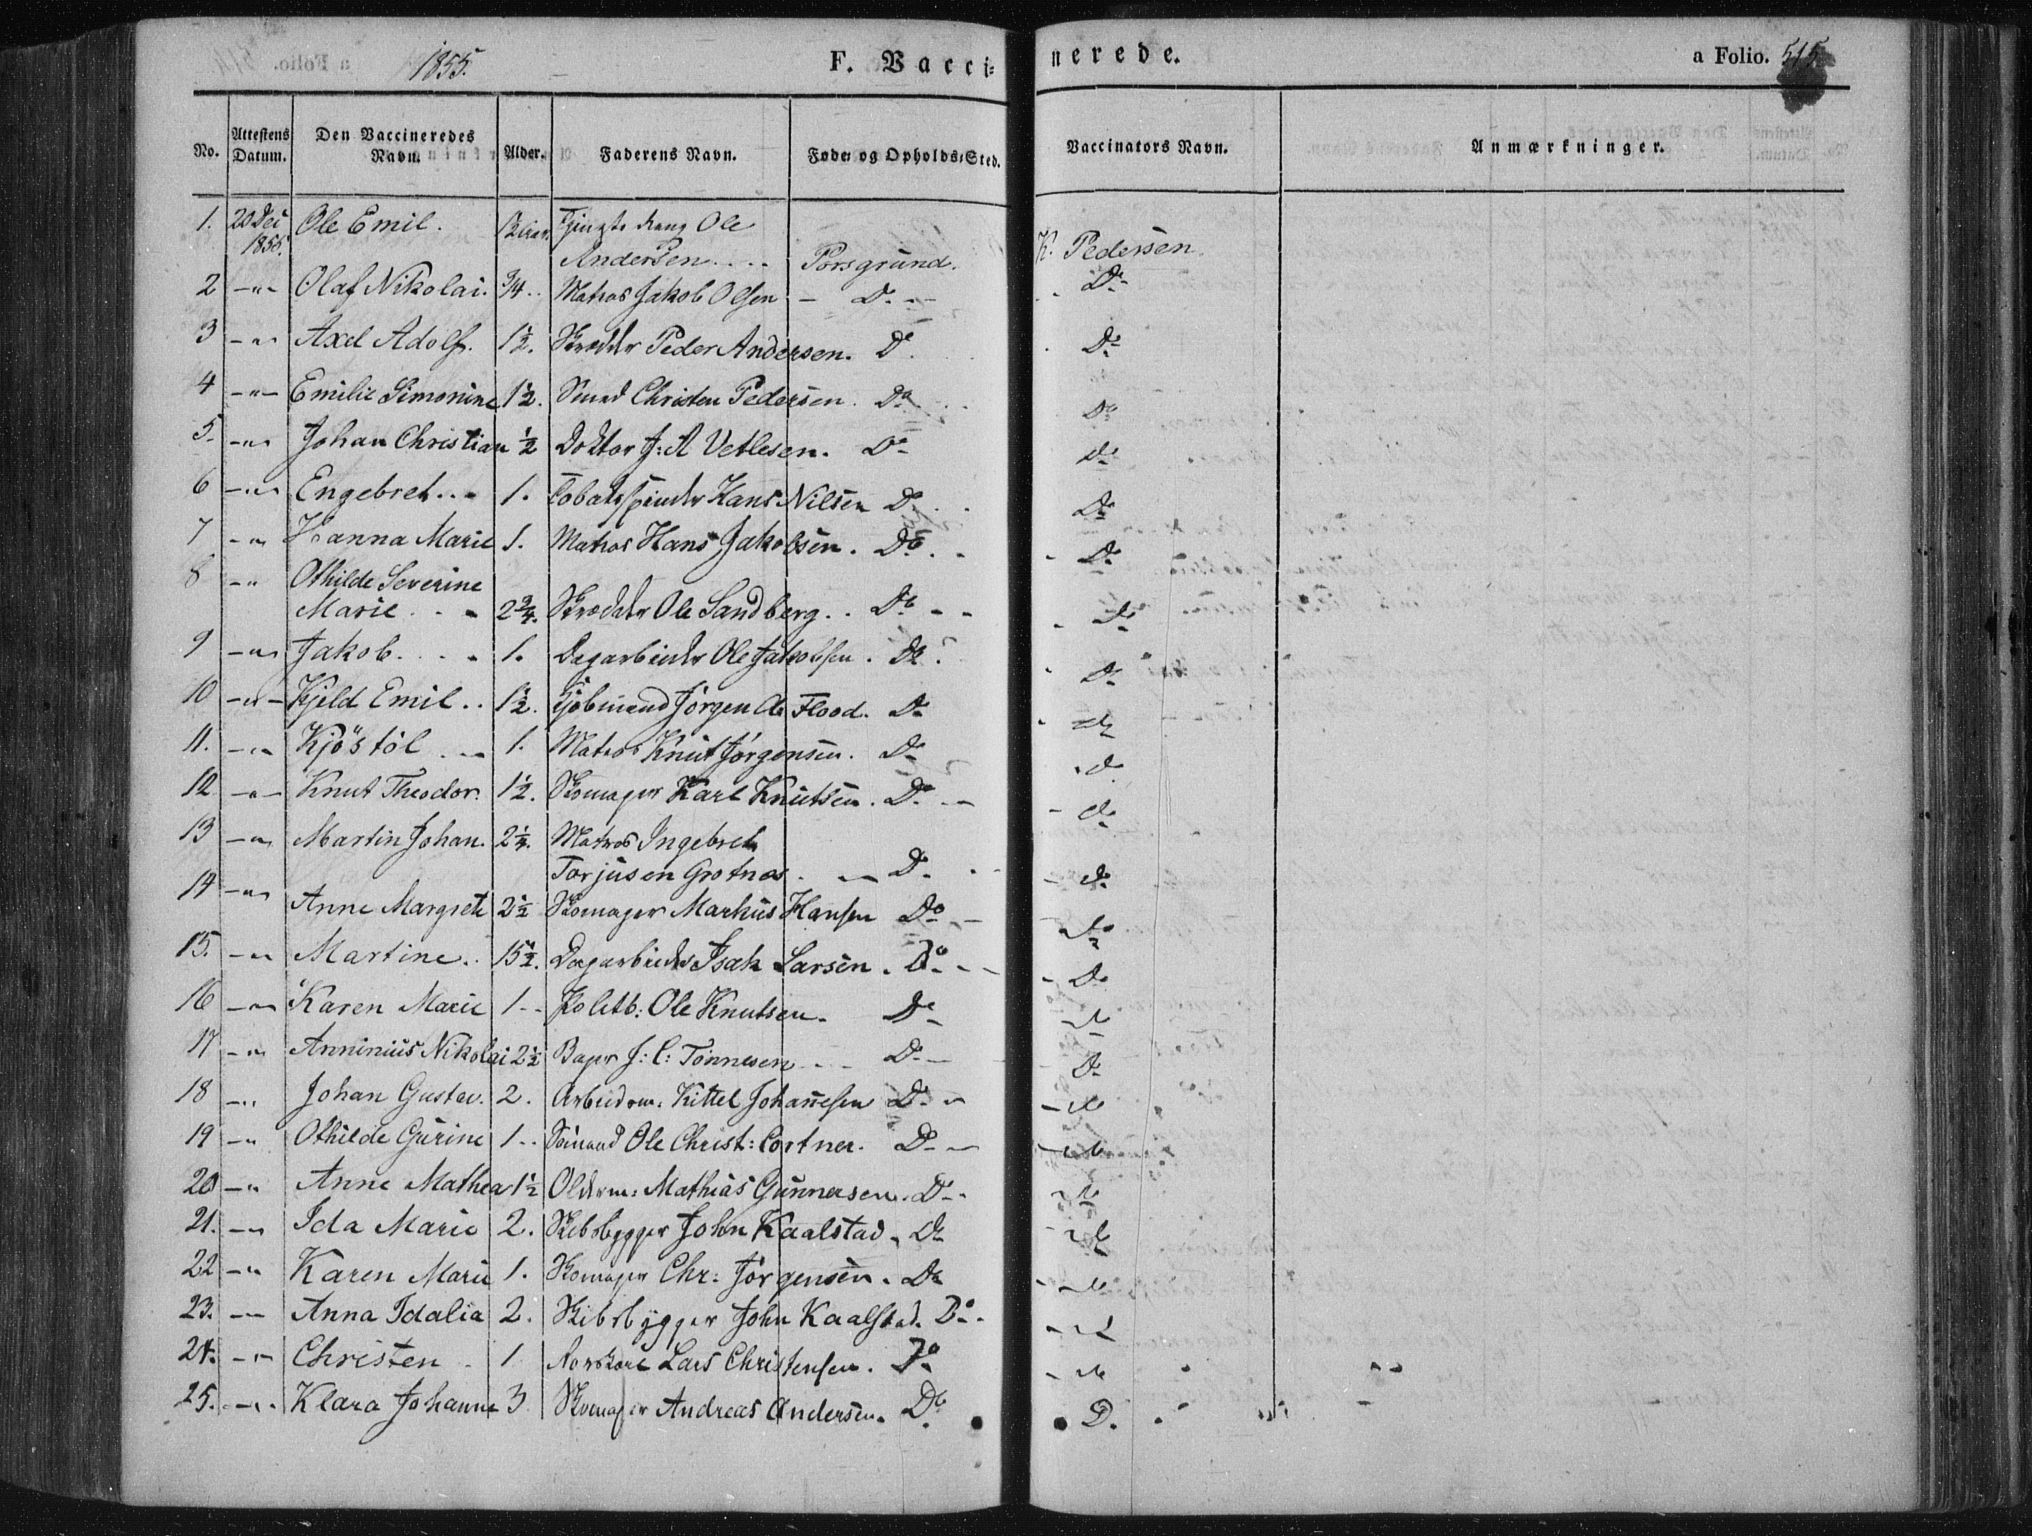 1855.
F. Vaccinerede.
a Folio. 515
No. Attestens Datum. Den Vaccineredes Navn. Alder. Faderens Navn. Føde- og Opholds-Sted. Vaccinators Navn. Anmærkninger.
1. 20 Dei 1855. Ole Emil. Ole
Andersen.... Porsgrund. K. Pedersen.
2 -"- Olaf Nikolai. 3/4.. Matros Jakob Olsen - Do. - Do
3 -"- Axel Adolf. 1½. Skrædder Peder Andersen. Do. Do
4 -"- Emilie Simonine 1½. Smed Christen Pedersen. Do. Do
5. -"- Johan Christian ½ Doktor J: A Vetlesen. Do Do
6 -"- Engebret... 1. Tobaksspinder Hans Nilsen Do.. Do
7 -"- Hanna Marie 1. Matros Hans Jakobsen. Do.. Do
8 -"- Othilde Severine
Marie.. - 2¾. Skrædder Ole Sandberg.. Do - - Do
9 -"- Jakob.... 1. Dagarbeider Ole Jakobsen. Do. Do
10 -"- Kjeld Emil.. 1½. Kjøbmand Jörgen A. Flood. Do Do
11. -"- Kjöstöl.. 1. Matros Knut Jørgensen. Do Do
12 -"- Knut Theodor. 1½. Skomager Karl Knutsen. Do. - Do
13 -"- Martin Johan. 2¼. Matros Ingebret
Torjusen Grotnes. - Do. Do
14 -"- Anne Margrete 2½ Skomager Markus Hansen Do - Do
15. -"- Martine.. 15½. Dagarbeider Isak Larsen. Do. - - Do
16 -"- Karen Marie 1-- Politb: Ole Knutsen. Do Do
17 -"- Anninius Nikolai 2½ Bager J: C: Tönnesen... Do - Do
18 -"- Johan Gustav. 2. Arbeidsm. Kittel Johannesen Do. - Do
19 -"- Othilde Gurine 1-- Sömand Ole Christ: Cortner. Do - Do
20 -"- Anne Mathea 1½ Olderm: Mathias Gunnersen. Do. Do
21. -"- Ida Marie 2. Skibsbygger John Kaalstad. Do Do
22 -"- Karen Marie 1. Skomager Chr: Jørgensen. Do Do
23. -"- Anna Idalia 2. Skibsbygger John Kaalstad. Do. Do
24. -"- Christen. 1 Lars Christensen. Do Do
25. -"- Klara Johanne 3 Skomager Andreas Andersen. Do. D.